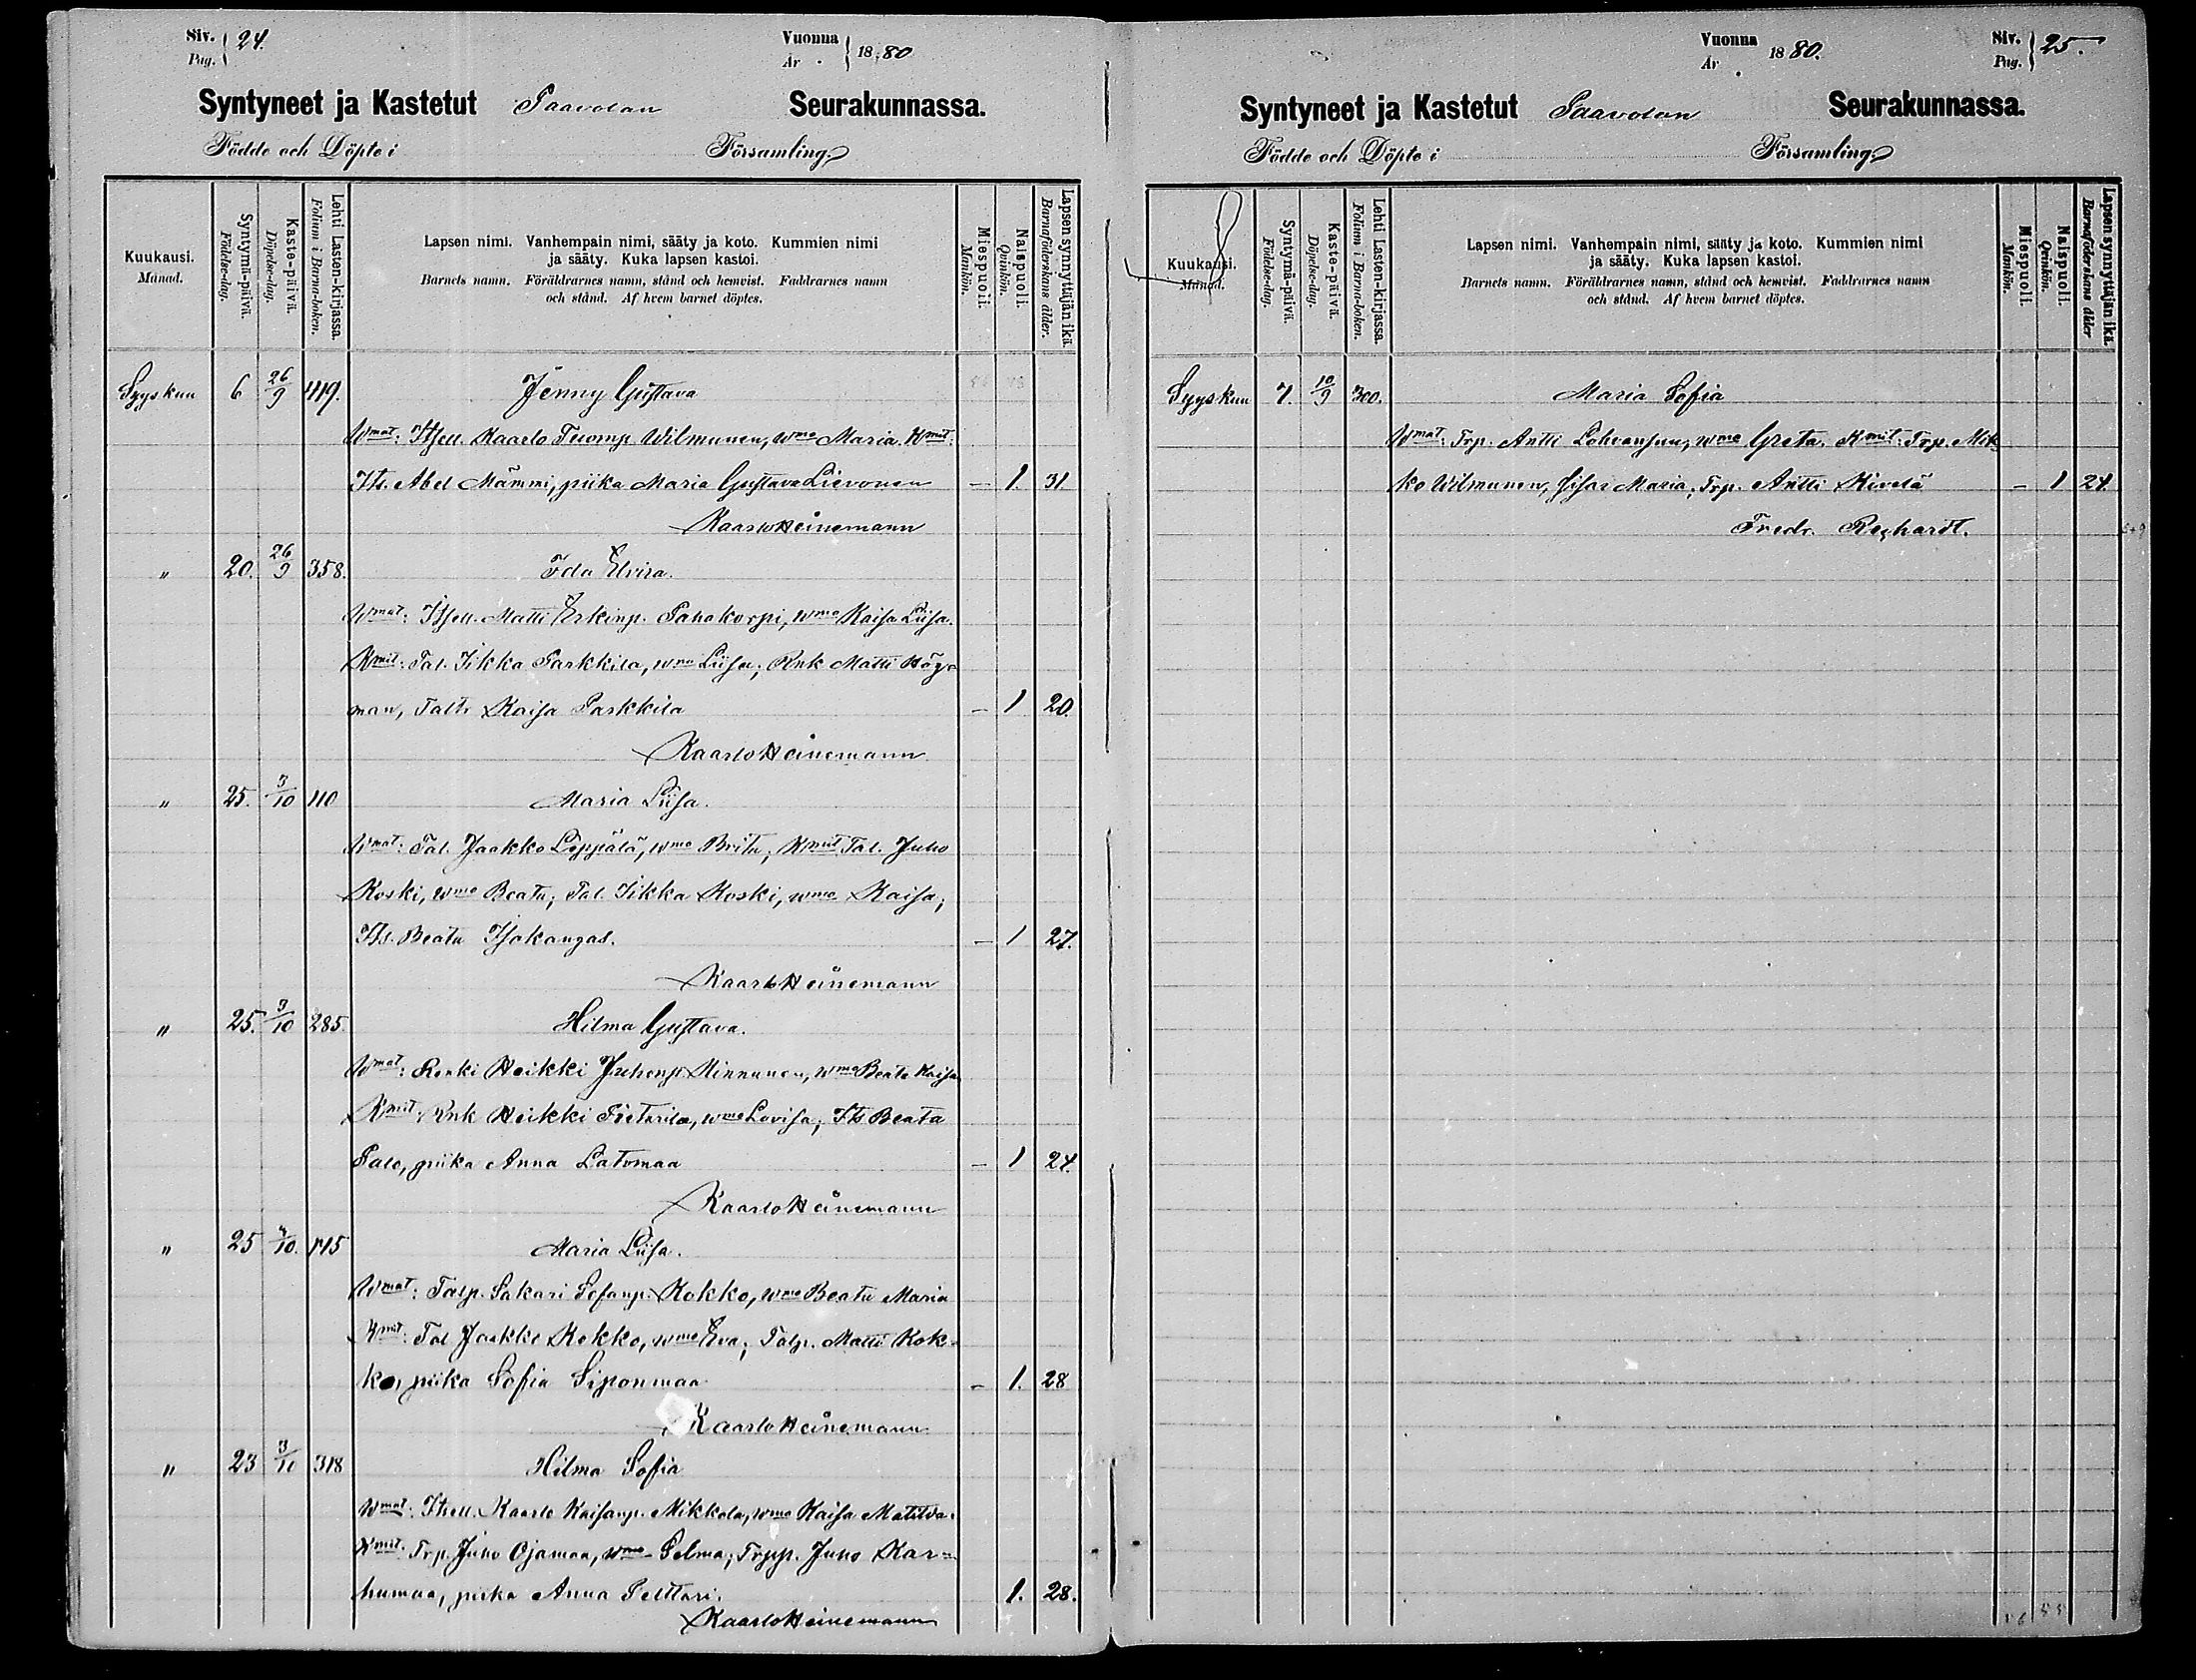 Siv. Pag. 24.
Vuonna År 1880
Syntyneet ja Kastetut Paavolan Seurakunnassa.
Födde och Döpte i Församling.
Kuukausi. Månad.
Syntymä-päivä. Födelse-dag.
Kaste-päivä. Döpelse-dag.
Lehti Lasten-kirjassa. Folium i Barna-boken.
Lapsen nimi. Vanhempain nimi, sääty ja koto. Kummien nimi
ja sääty. Kuka lapsen kastoi.
Barnets namn. Föräldrarnes namn, stånd och hemvist. Faddrarnes namn
och stånd. Af hvem barnet döptes.
Miespuoli. Mankön.
Naispuoli. Qvinkön.
Lapsen synnyttäjän ikä. Barnaföderskans ålder.
Syyskun 6 26/9 419. Jenny Gustava
Wmat: Itsell. Kaarlo Tuomp. Wilmunen, wmo Maria. Kmit:
Its. Abel Mämmi, piika Maria Gustava Lievonen — 1. 31
Kaarlo Heinemann
" 20. 26/9 358. Ida Elvira.
Wmat: Itsell. Matti Erkinp. Pahakorpi, wmo Kaisa Liisa.
Kmit: Tal. Iikka Parkkila, wmo Liisa; Rnk Matti Hög-
man, Taltr Kaisa Parkkila — 1 20.
Kaarlo Heinemann
" 25. 3/10 110 Maria Liisa.
Wmat: Tal. Jaakko Leppälä, wmo Brita; Kmit Tal. Juho
Koski, wmo Beata; Tal. Iikka Koski, wmo Kaisa;
Its. Beata Isokangas. — 1 27.
Kaarlo Heinemann
" 25. 3/10 285. Hilma Gustava.
Wmat: Renki Heikki Juhonp. Kinnunen, wmo Beata Kaisa
Kmit: Rnk Heikki Pietarila, wmo Lovisa; Its Beata
Palo, piika Anna Latomaa — 1 24.
Kaarlo Heinemann
" 25 /10. 115 Maria Liisa.
Wmat: Talp. Sakari Kokko, wmo Beata Maria
Kmit: Tal Jaakko Kokko, wmo Eva; Talp. Matti Kok-
ko, piika Sofia Siponmaa — 1. 28
Kaarlo Heinemann
" 23 3/10 318 Hilma Sofia
Wmat: Itsell. Kaarlo Kaisanp. Mikkola, wmo Kaisa Matilda.
Kmit: Trp. Juho Ojamaa, wmo Selma; Trpp. Juho Kar-
humaa, piika Anna Pelttari. 1. 28.
Kaarlo Heinemann
Vuonna År 1880.
Siv. Pag. 25.
Syntyneet ja Kastetut Paavolan Seurakunnassa.
Födde och Döpte i Församling.
Kuukausi. Månad.
Syntymä-päivä. Födelse-dag.
Kaste-päivä. Döpelse-dag.
Lehti Lasten-kirjassa. Folium i Barna-boken.
Lapsen nimi. Vanhempain nimi, sääty ja koto. Kummien nimi
ja sääty. Kuka lapsen kastoi.
Barnets namn. Föräldrarnes namn, stånd och hemvist. Faddrarnes namn
och stånd. Af hvem barnet döptes.
Miespuoli. Mankön.
Naispuoli. Qvinkön.
Lapsen synnyttäjän ikä. Barnaföderskans ålder
Syyskun 7. 10/9 300. Maria Sofia
Wmat: Trp. Antti Lohvansuu, wmo Greta. Kmit: Trp. Mik-
ko Wilmunen, sisar Maria; Trp. Antti Kivelä — 1 24.
Fredr. Rechardt.